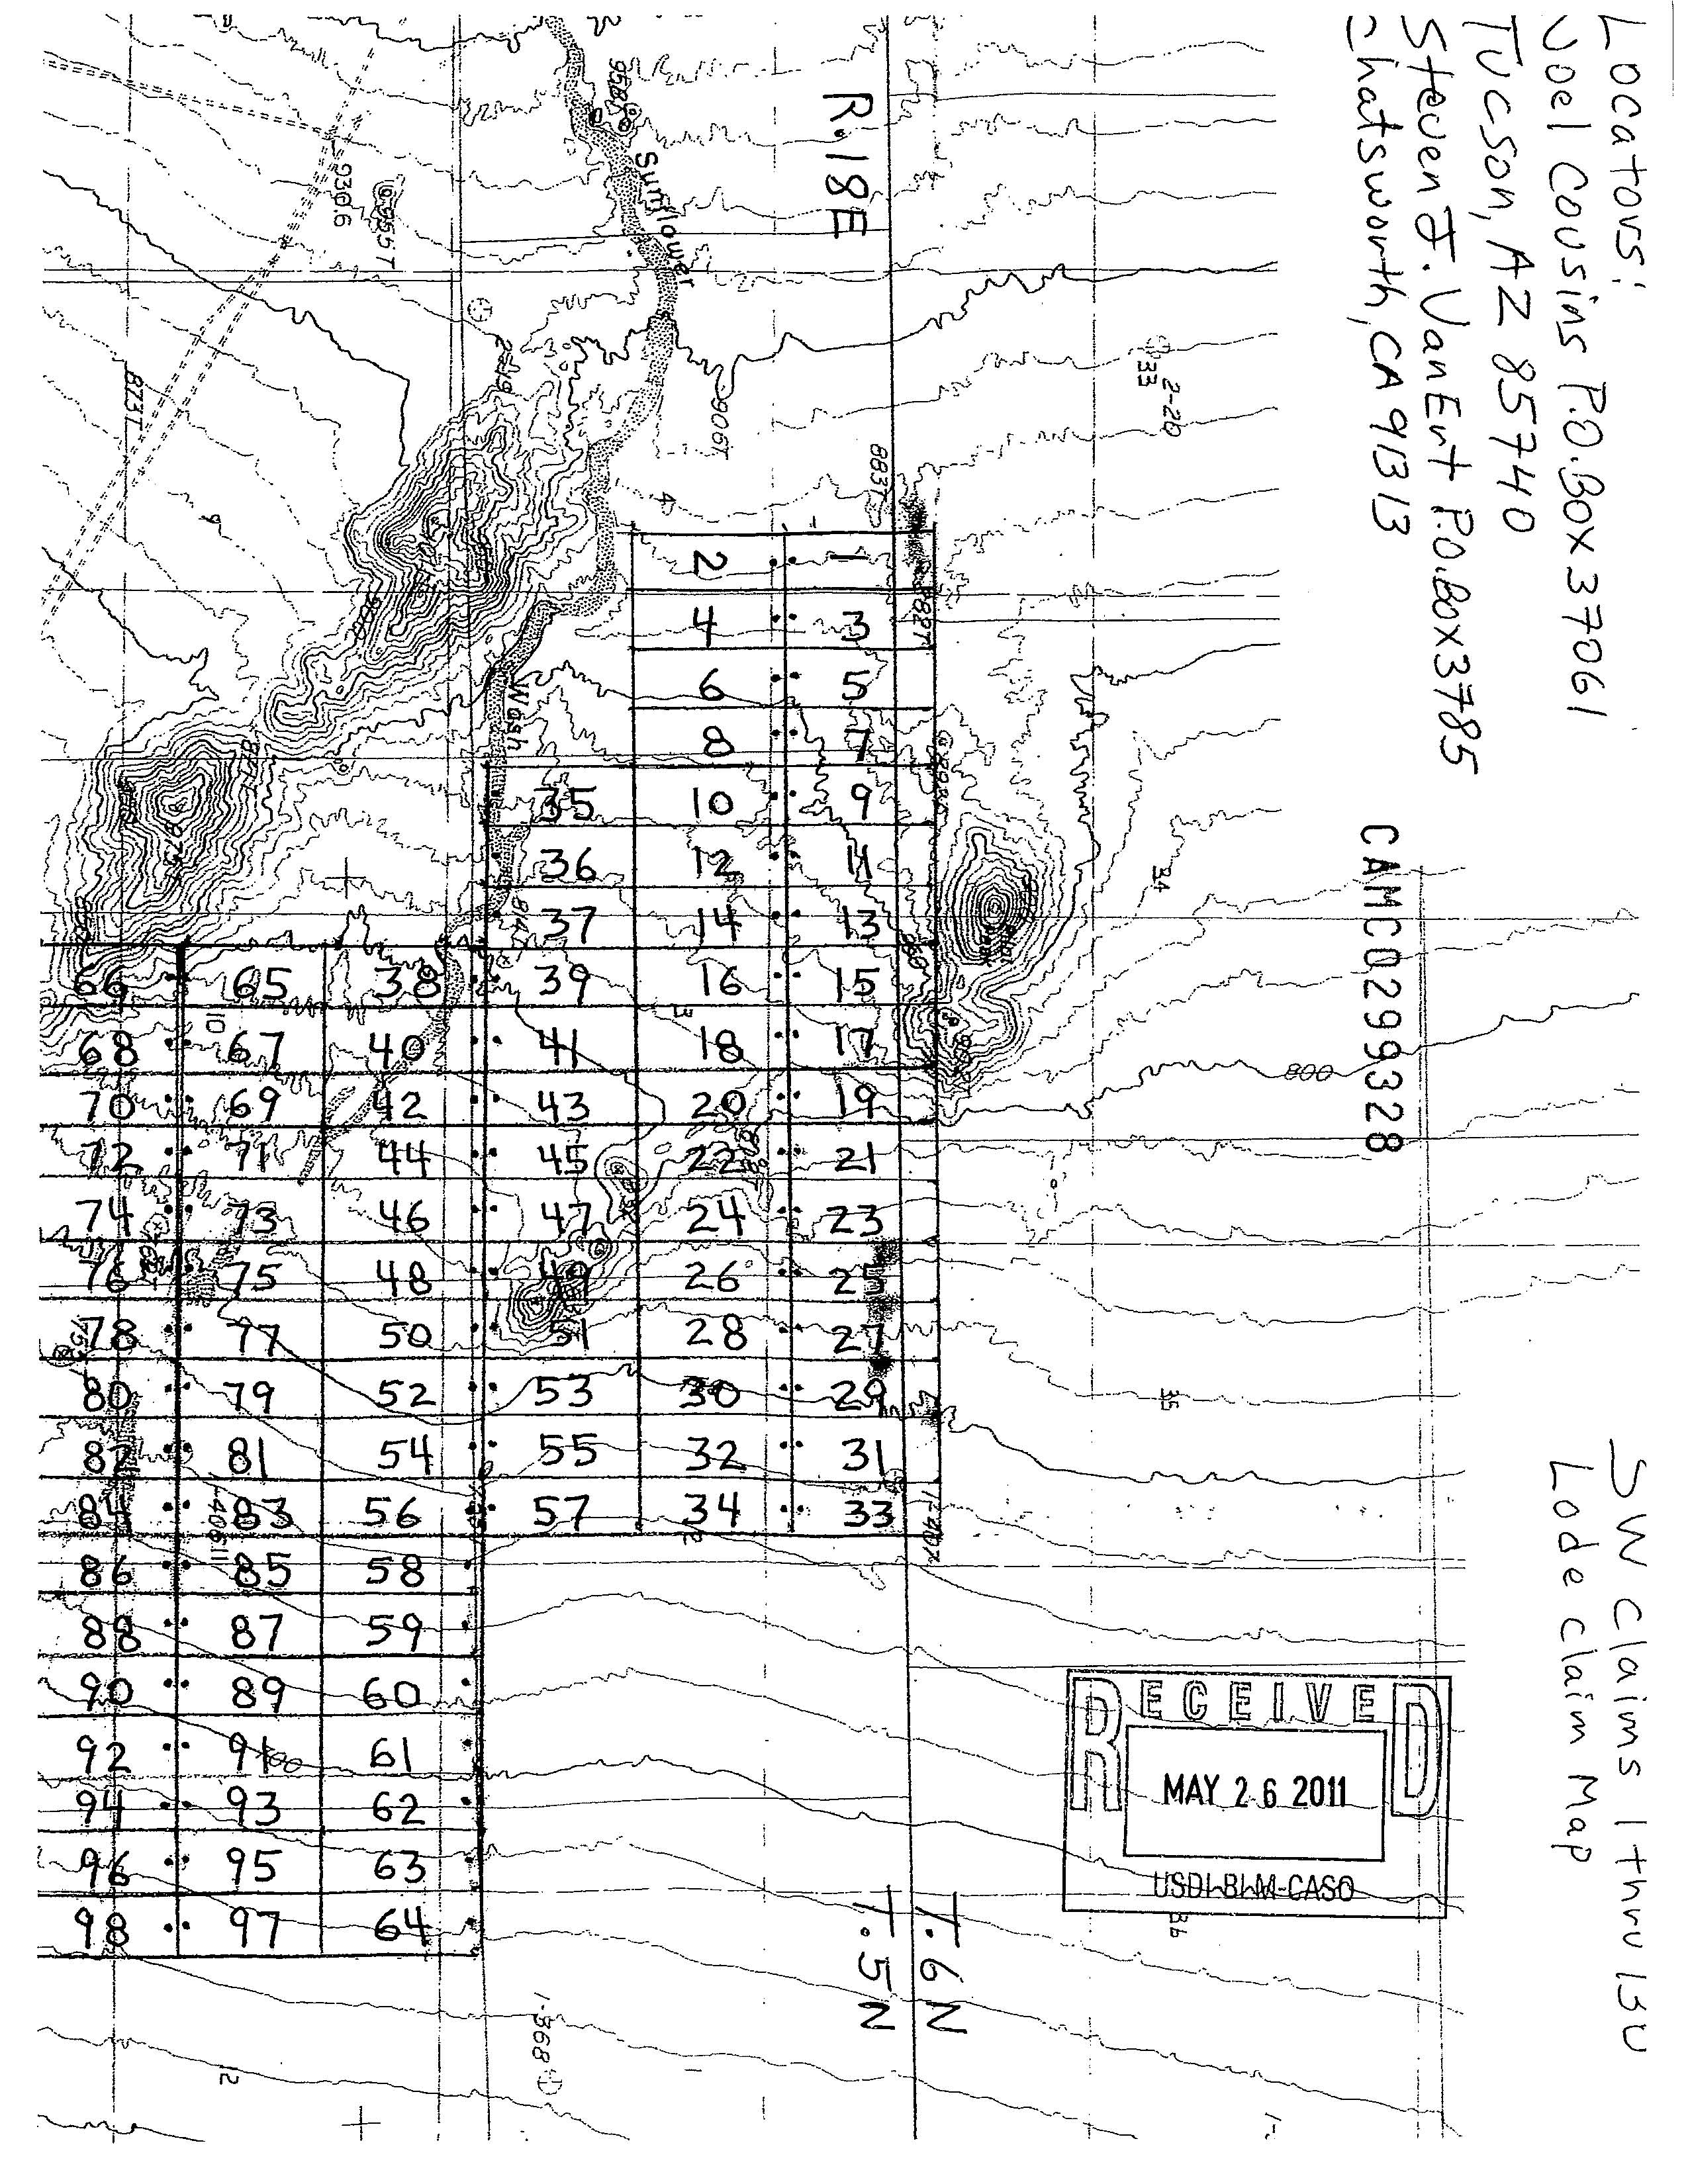 Locators:
Noel Cousins P.O. Box 37061
Tucson, AZ 85740
Steven J. VanEnt P.O. Box 3785
Chatsworth, CA 91313
CAMC0299328
SW Claims 1 thru 130
Lode Claim Map
RECEIVED
MAY 26 2011
USDI-BLM-CASO
R. 18E
T. 6 N
T. 5 N
Sunflower
Wash
958
930.6
955T
873T
2-19
906T
883T
882T
33
2-20
34
800
35
36
4
9
10
814
12
1
1-368
700
1 2
3 4
5 6
7 8
9 10 35
11 12 36
13 14 37
15 16 39 38 65 66
17 18 41 40 67 68
19 20 43 42 69 70
21 22 45 44 71 72
23 24 47 46 73 74
25 26 49 48 75 76
27 28 51 50 77 78
29 30 53 52 79 80
31 32 55 54 81 82
33 34 57 56 83 84
58 85 86
59 87 88
60 89 90
61 91 92
62 93 94
63 95 96
64 97 98